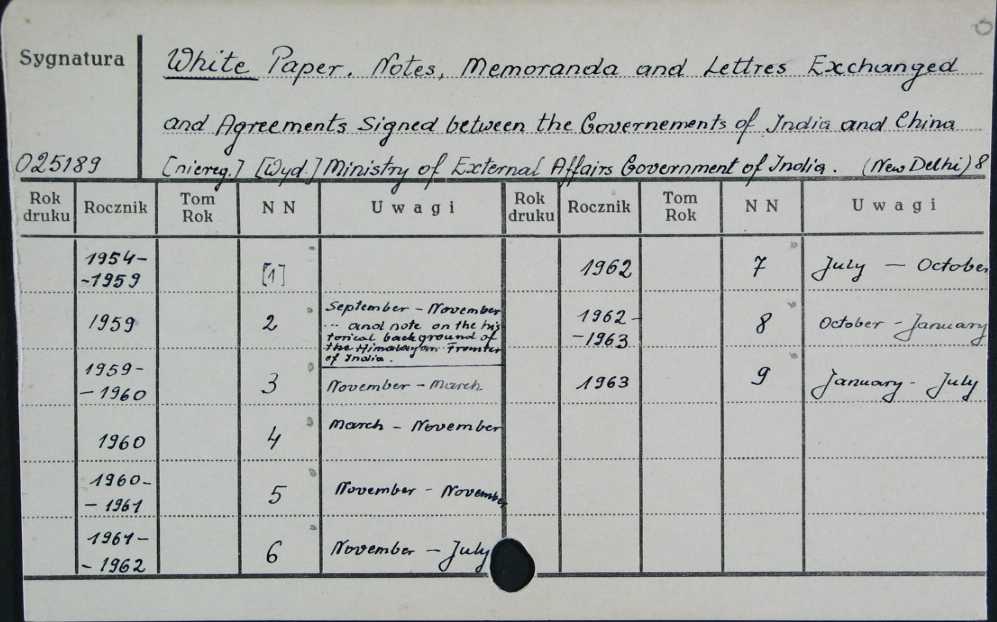 Sygnatura
White Paper. Notes, Memoranda and Lettres Exchanged
and Agreements Signed between the Governements of India and China
025189 [niereg.] [Wyd.] Ministry of External Affairs Government of India. (New Delhi) 8
Rok druku Rocznik Tom Rok N N Uwagi Rok druku Rocznik Tom Rok N N Uwagi
1954-
-1959 [1]
1959 2 September - November
... and note on the his
torical background of
the Himalayan Frontier
of India.
1959-
-1960 3 November - March
1960 4 March - November
1960-
-1961 5 November - November
1961-
-1962 6 November - July
1962 7 July - October
1962-
-1963 8 October - January
1963 9 January - July